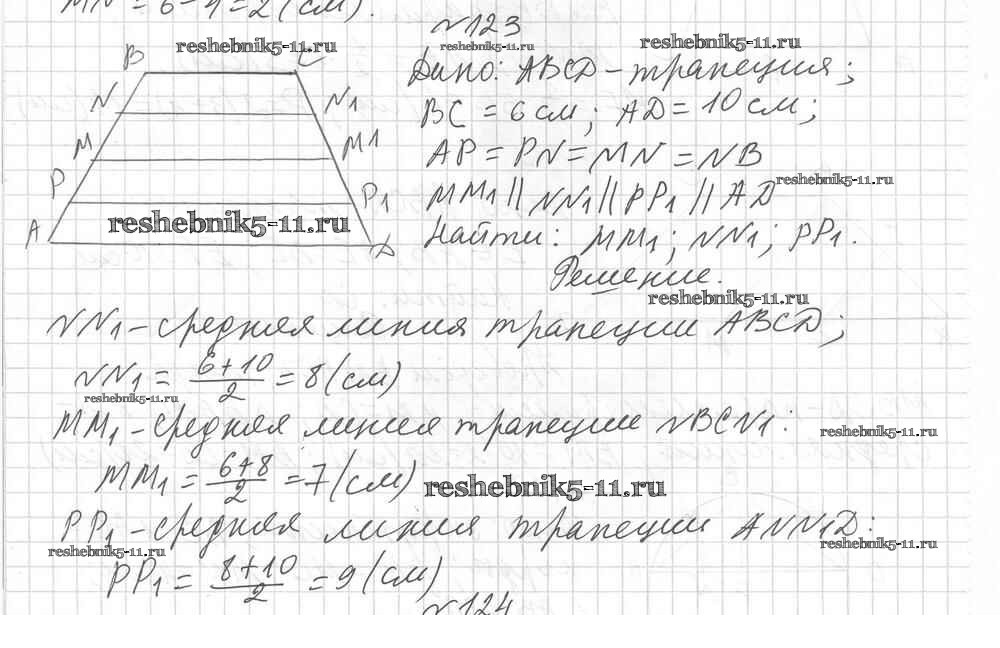 MN = 6-4=2 (см).
№123
reshebnik5-11.ru
reshebnik5-11.ru
reshebnik5-11.ru
B C
Дано: ABCD - трапеция;
N N1
BC = 6 см; AD = 10 см;
M M1
AP = PN = MN = NB
reshebnik5-11.ru
P P1
MM1 || NN1 || PP1 || AD
reshebnik5-11.ru
A D
Найти: MM1; NN1; PP1.
Решение.
reshebnik5-11.ru
NN1 - средняя линия трапеции ABCD;
NN1 = 6+10/2 = 8 (см)
reshebnik5-11.ru
MM1 - средняя линия трапеции NBCN1:
reshebnik5-11.ru
MM1 = 6+8/2 = 7 (см)
reshebnik5-11.ru
PP1 - средняя линия трапеции ANN1D:
reshebnik5-11.ru
reshebnik5-11.ru
PP1 = 8+10/2 = 9 (см)
№124